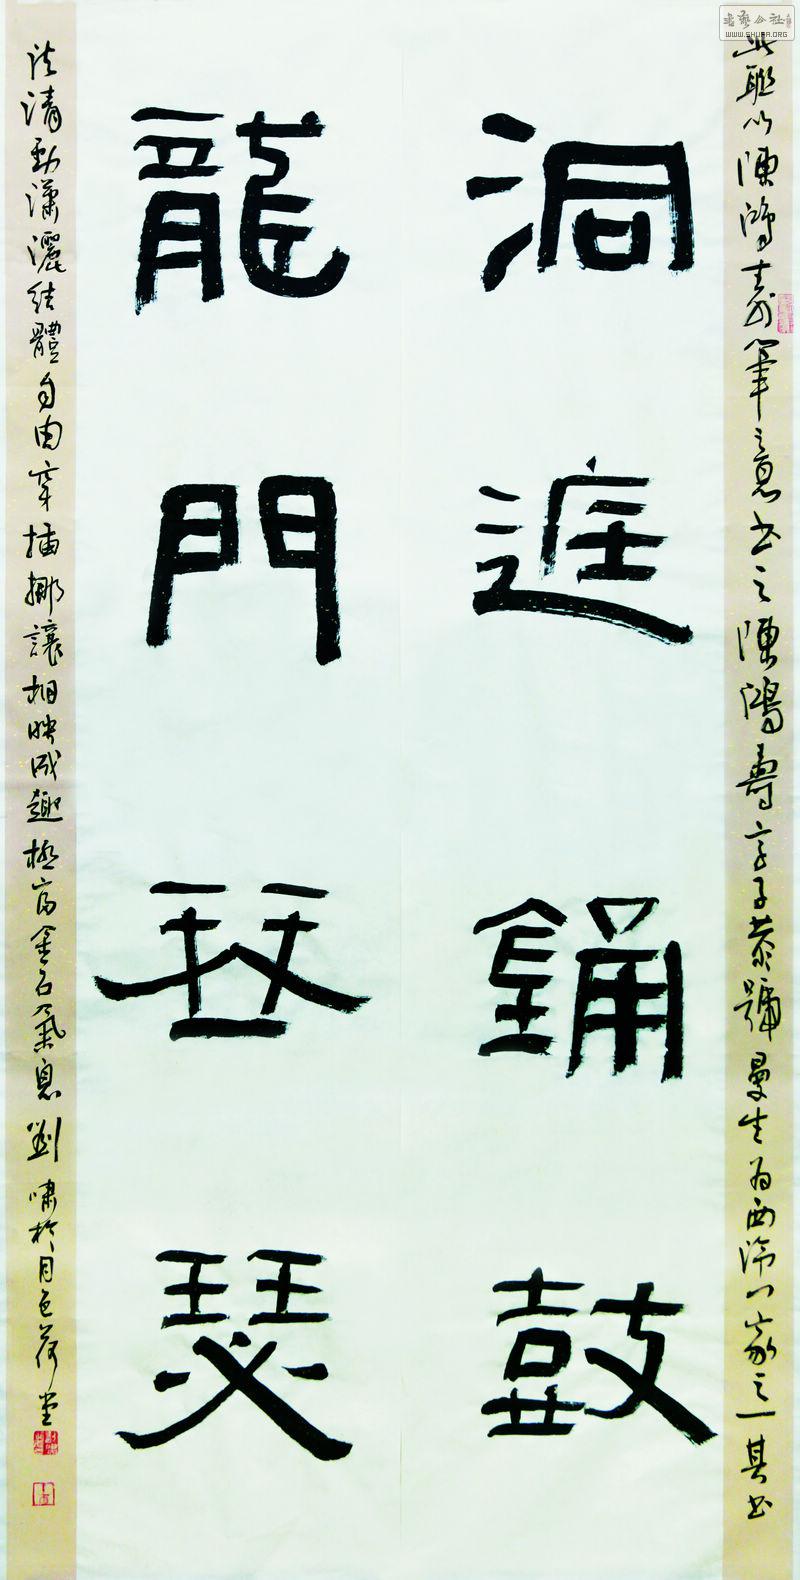 書藝公社
WWW.SHUFA.ORG
此聯以陳鴻壽筆意書之陳鴻壽字子恭號曼生為西泠八家之一其書
洞庭銿鼓
龍門琴瑟
法清勁瀟灑結體自由穿插挪讓相映成趣極富金石氣息劉嘯於月色荷堂